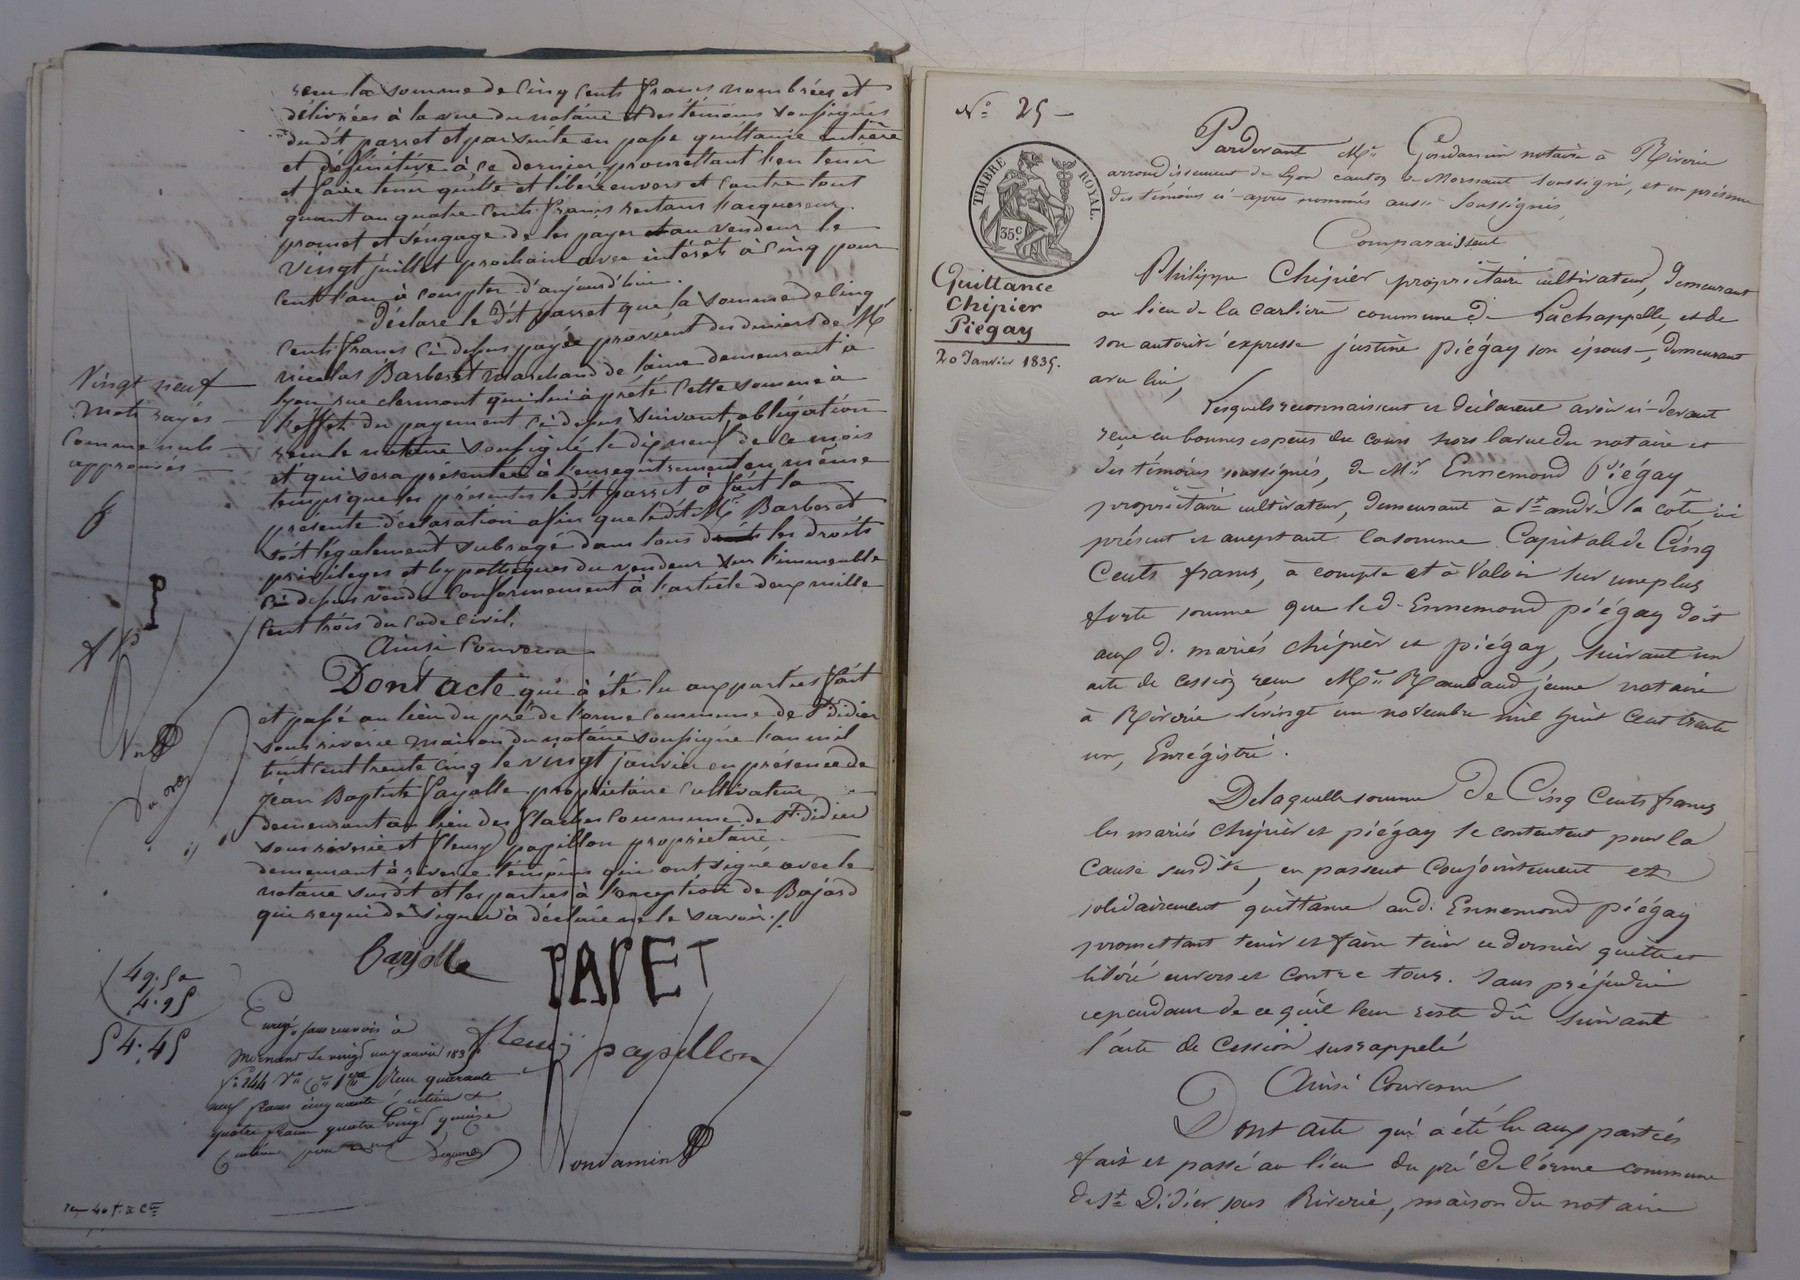 reçu la somme de Cinq Cents francs nombrées et
délivrées à la vue du notaire et des témoins soussignés
dudit passet et par suite en passe quittance entière
et définitive à ce dernier promettant l'en tenir
et faire tenir quitte et libéré envers et contre tout
quant au quatre Cents francs restans l'acquereur
promet et s'engage de les payer au vendeur le
vingt juillet prochain avec intérêts à Cinq pour
Cent l'an à compter d'aujourd'hui.
Déclare le dit passet que la somme de Cinq
Cents francs Ci dessus payée provient des deniers de Mr
nicolas Barberet marchand de laine demeurant à
lyon rue clermont qui lui à prêté Cette somme à
l'effet du payement Ci dessus suivant obligation
reçu le notaire soussigné le dix neuf de Ce mois
et qui sera présentée à l'enregistrement en même
temps que les présentes le dit passet à fait la
présente déclaration afin que ledit Mr Barberet
soit légalement subrogé dans tous les droits
privilèges et hypothèques du vendeur sur l'immeuble
Ci dessus vendu Conformément à l'article deux mille
Cent trois du Code Civil.
Ainsi Convenu
Dont acte qui à été lu aux parties fait
et passé au lieu du pré de l'orme Commune de St Didier
sous riverie maison du notaire soussigné l'an mil
huit Cent trente Cinq le vingt janvier en présence de
Jean Baptiste fayolle propriétaire Cultivateur
demeurant au lieu des flaches Commune de St Didier
sous riverie et fleury papillon propriétaire
demeurant à riverie témoins qui ont signé avec le
notaire susdit et les parties à l'exception de Bajard
qui requis de signer à déclaré ne le savoir
Vingt neuf
mots rayés
Comme nuls
approuvés
fayolle
PASET
fleury papillon
Gondamin
49.50
4.95
54.45
Enregé sans renvois à
Mornant le vingt un janvier 1835
fo 144 Vo Ce 1ere Reçu quarante
neuf francs cinquante centimes et
quatre francs quatre vingt quinze
Centimes pour
No 25
TIMBRE ROYAL.
35c
Quittance
Chipier
Piégay
20 Janvier 1835.
Pardevant Me Gondamin notaire à Riverie
arrondissement de Lyon canton de Mornant soussigné, et en présence
des témoins ci-après nommés aussi soussignés,
Comparaissent
Philippe Chipier propriétaire cultivateur, demeurant
au lieu de la carlière commune de Lachappelle, et de
son autorité expresse justine piégay son épouse, demeurant
avec lui,
Lesquels reconnaissent et déclarent avoir ci-devant
reçu en bonnes espèces du cours hors la vue du notaire et
des témoins soussignés, de Mr Ennemond Piégay
propriétaire cultivateur, demeurant à St andré la côte, ici
présent et acceptant la somme Capitale de Cinq
Cents francs, à compte et à Valoir sur une plus
forte somme que led. Ennemond piégay doit
aux d. mariés chipier et piégay, suivant un
acte de cession reçu Me Rambaud jeune notaire
à Riverie le vingt un novembre mil huit Cent trente
un, Enregistré.
De laquelle somme de Cinq Cents francs
les mariés chipier et piégay se contentent pour la
cause susdite, en passent conjointement et
solidairement quittance aud. Ennemond piégay
promettant tenir et faire tenir ce dernier quitte et
libéré envers et contre tous. Sans préjudice
cependant de ce qu'il leur reste dû suivant
l'acte de Cession susrappelé
Ainsi Convenu
Dont acte qui à été lu aux parties
fait et passé au lieu du pré de l'orme commune
de St Didier sous Riverie, maison du notaire